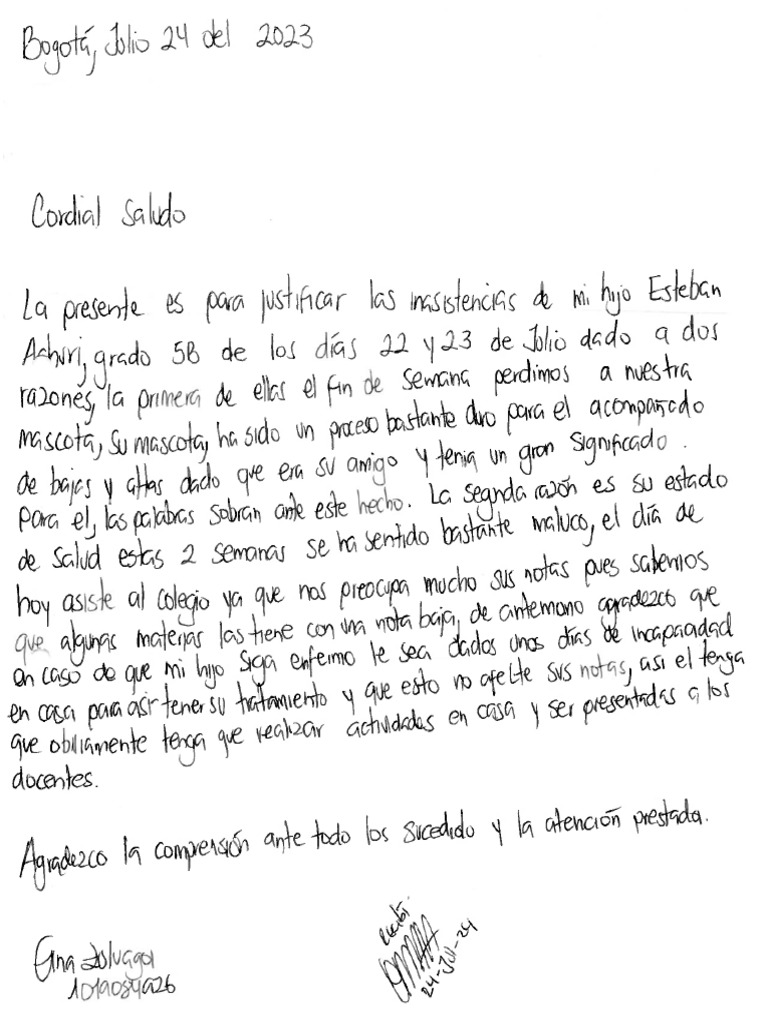 Bogotá, Julio 24 del 2023
Cordial Saludo
La presente es para justificar las inasistencias de mi hijo Esteban
Achuri, grado 5B de los días 22 y 23 de Julio dado a dos
razones, la primera de ellas el fin de semana perdimos a nuestra
mascota, su mascota, ha sido un proceso bastante duro para el acompañado
de bajas y altas dado que era su amigo y tenia un gran significado.
para el, las palabras sobran ante este hecho. La segunda razón es su estado
de salud estas 2 semanas se ha sentido bastante maluco, el día de
hoy asiste al colegio ya que nos preocupa mucho sus notas pues sabemos
que algunas materias las tiene con una nota baja, de antemano agradezco que
en caso de que mi hijo siga enfermo le sea dados unos días de incapacidad
en casa para asir tener su tratamiento y que esto no afecte sus notas, asi el tenga
que obiliamente tenga que realizar actividades en casa y ser presentadas a los
docentes.
Agradezco la comprensión ante todo los sucedido y la atención prestada.
recibí
24-Jul-24